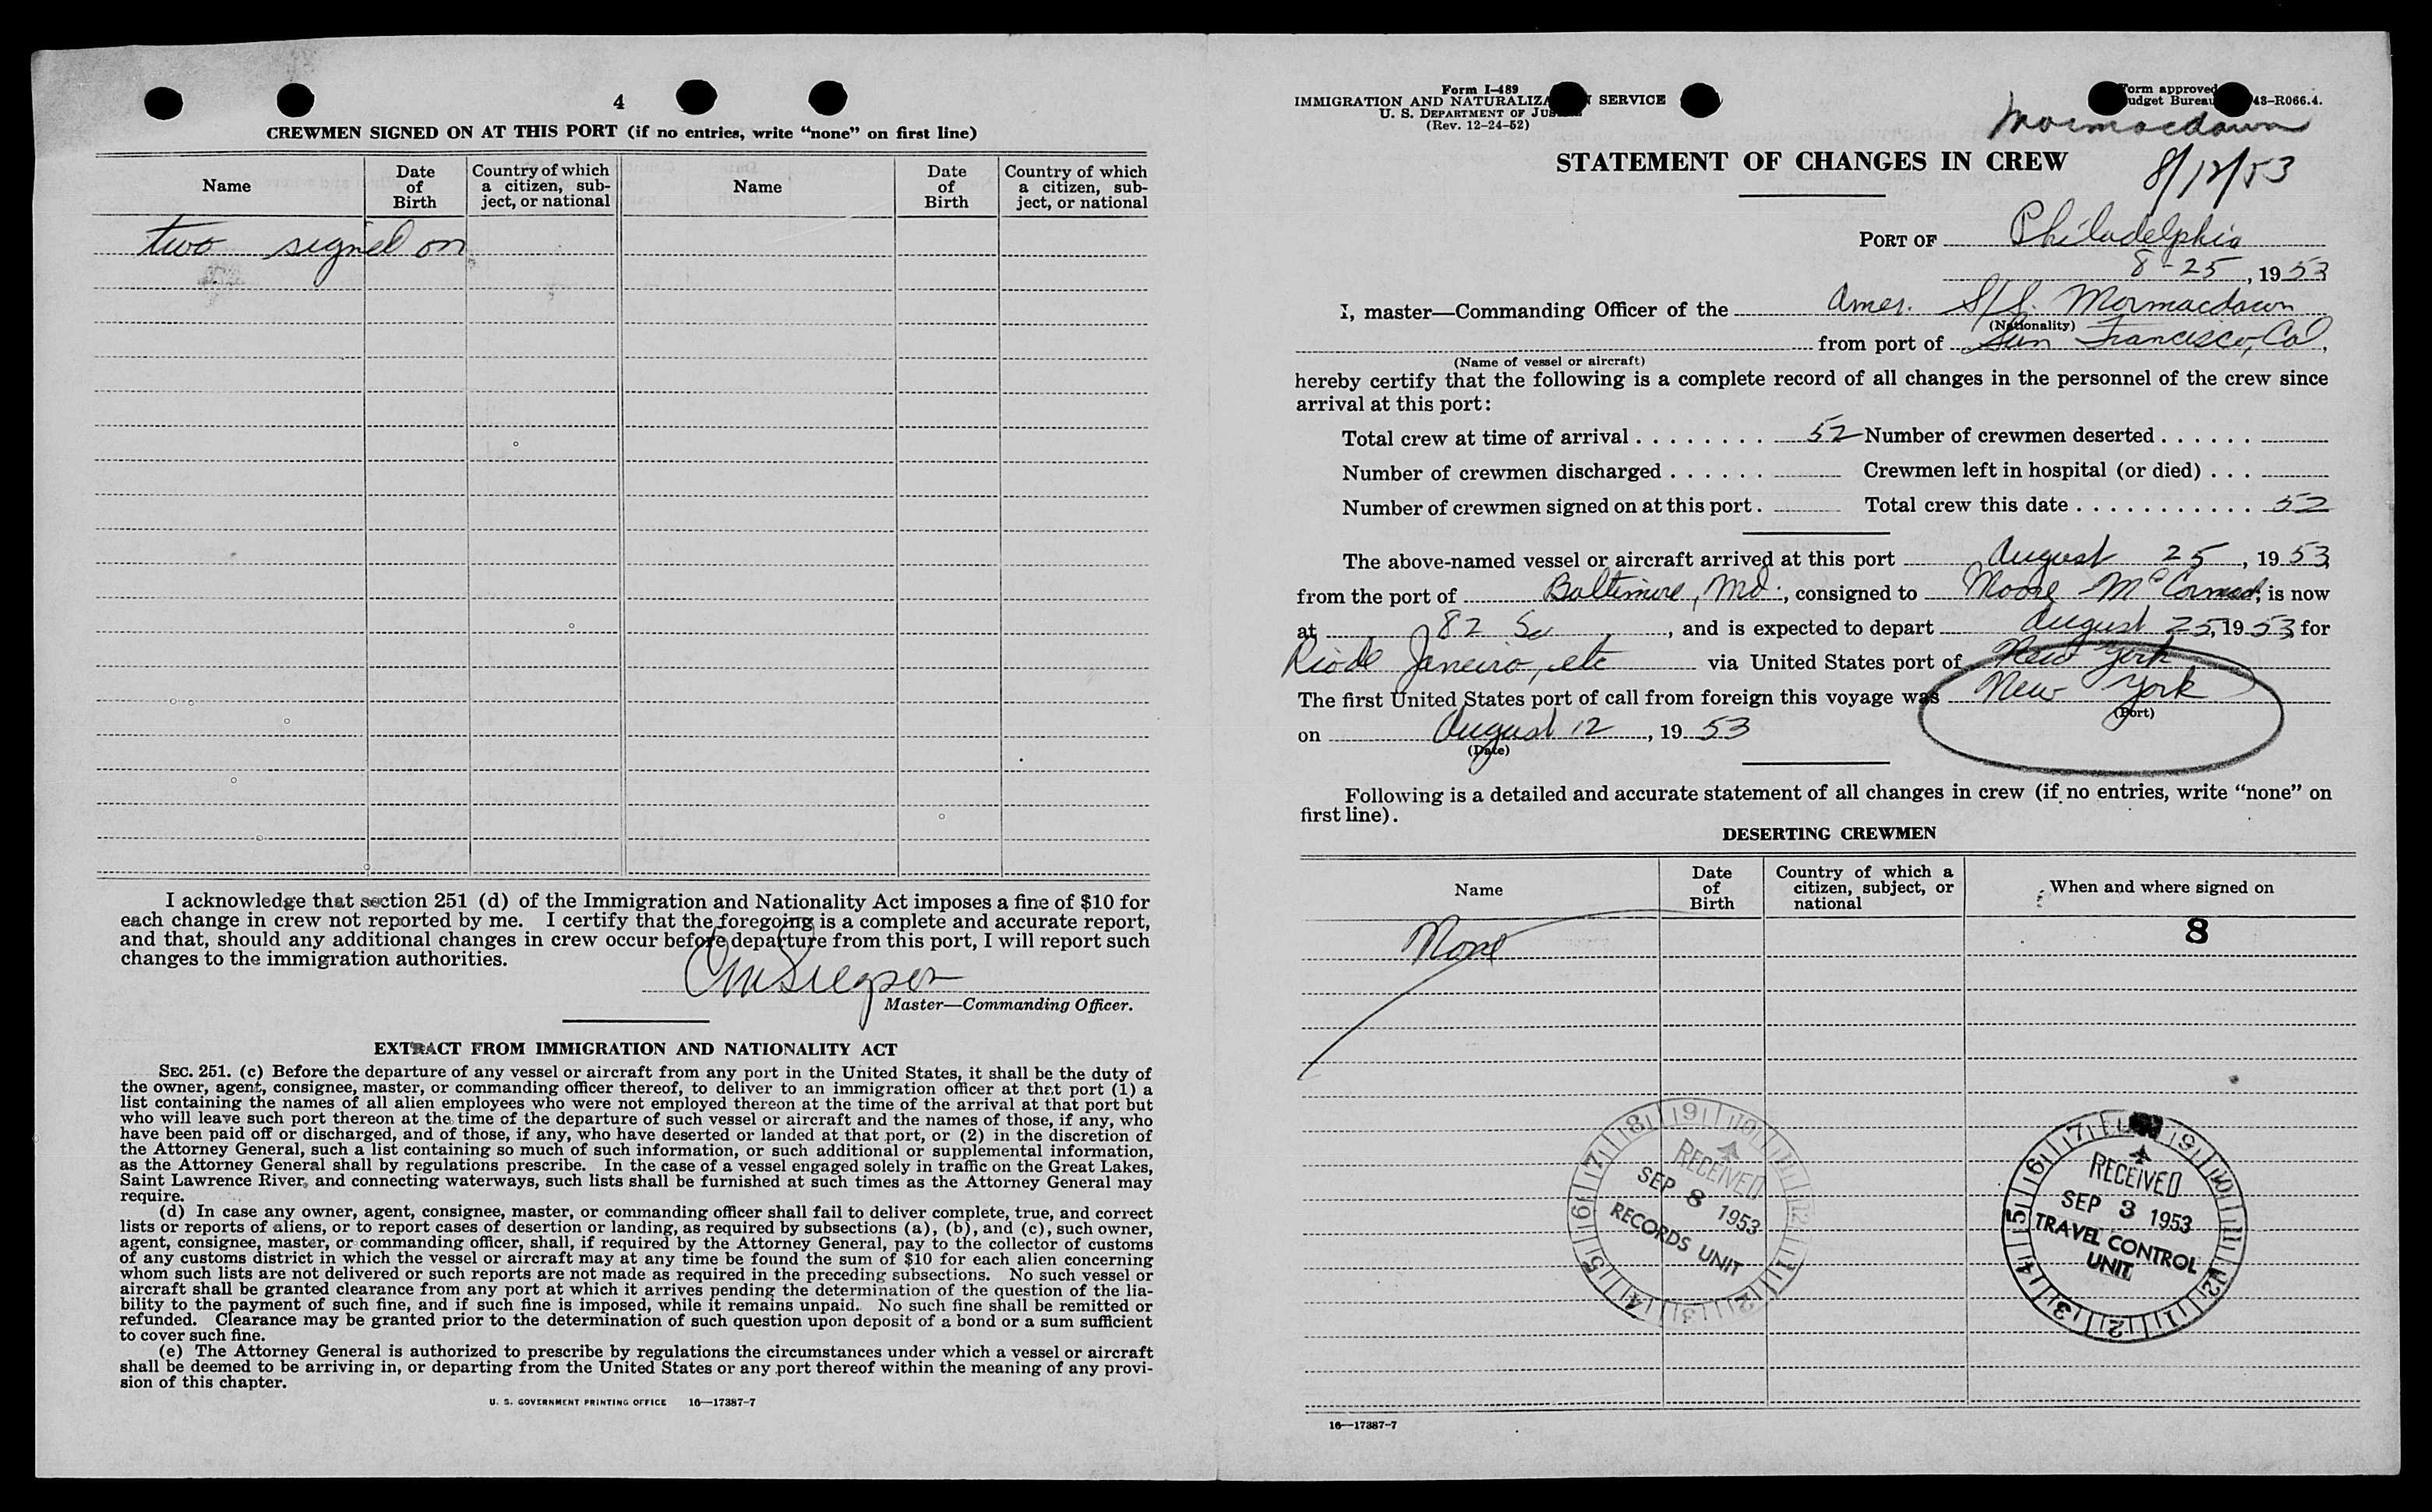 4
CREWMEN SIGNED ON AT THIS PORT (if no entries, write "none" on first line)
Name
Date of Birth
Country of which a citizen, subject, or national
Name
Date of Birth
Country of which a citizen, subject, or national
two signed on
I acknowledge that section 251 (d) of the Immigration and Nationality Act imposes a fine of $10 for
each change in crew not reported by me. I certify that the foregoing is a complete and accurate report,
and that, should any additional changes in crew occur before departure from this port, I will report such
changes to the immigration authorities.
Master—Commanding Officer.
EXTRACT FROM IMMIGRATION AND NATIONALITY ACT
SEC. 251. (c) Before the departure of any vessel or aircraft from any port in the United States, it shall be the duty of
the owner, agent, consignee, master, or commanding officer thereof, to deliver to an immigration officer at that port (1) a
list containing the names of all alien employees who were not employed thereon at the time of the arrival at that port but
who will leave such port thereon at the time of the departure of such vessel or aircraft and the names of those, if any, who
have been paid off or discharged, and of those, if any, who have deserted or landed at that port, or (2) in the discretion of
the Attorney General, such a list containing so much of such information, or such additional or supplemental information,
as the Attorney General shall by regulations prescribe. In the case of a vessel engaged solely in traffic on the Great Lakes,
Saint Lawrence River, and connecting waterways, such lists shall be furnished at such times as the Attorney General may
require.
(d) In case any owner, agent, consignee, master, or commanding officer shall fail to deliver complete, true, and correct
lists or reports of aliens, or to report cases of desertion or landing, as required by subsections (a), (b), and (c), such owner,
agent, consignee, master, or commanding officer, shall, if required by the Attorney General, pay to the collector of customs
of any customs district in which the vessel or aircraft may at any time be found the sum of $10 for each alien concerning
whom such lists are not delivered or such reports are not made as required in the preceding subsections. No such vessel or
aircraft shall be granted clearance from any port at which it arrives pending the determination of the question of the lia-
bility to the payment of such fine, and if such fine is imposed, while it remains unpaid. No such fine shall be remitted or
refunded. Clearance may be granted prior to the determination of such question upon deposit of a bond or a sum sufficient
to cover such fine.
(e) The Attorney General is authorized to prescribe by regulations the circumstances under which a vessel or aircraft
shall be deemed to be arriving in, or departing from the United States or any port thereof within the meaning of any provi-
sion of this chapter.
U. S. GOVERNMENT PRINTING OFFICE 16—17387-7
Form I-489
IMMIGRATION AND SERVICE
U. S. DEPARTMENT OF
(Rev. 12-24-52)
Form approved
Budget Bureau 43-R066.4.
Mormacdawn
8/12/53
STATEMENT OF CHANGES IN CREW
PORT OF Philadelphia
8-25, 1953
I, master—Commanding Officer of the Amer. S/S. Mormacdawn
(Nationality)
from port of San Francisco, Cal,
(Name of vessel or aircraft)
hereby certify that the following is a complete record of all changes in the personnel of the crew since
arrival at this port:
Total crew at time of arrival 52 Number of crewmen deserted
Number of crewmen discharged Crewmen left in hospital (or died)
Number of crewmen signed on at this port. Total crew this date 52
The above-named vessel or aircraft arrived at this port August 25, 1953
from the port of Baltimore, Md., consigned to Moore McCormack, is now
at 82 So, and is expected to depart August 25, 1953, for
Rio de Janeiro, etc via United States port of New York
The first United States port of call from foreign this voyage was New York
(Port)
on August 12, 1953
(Date)
Following is a detailed and accurate statement of all changes in crew (if no entries, write "none" on
first line).
DESERTING CREWMEN
Name
Date of Birth
Country of which a citizen, subject, or national
When and where signed on
8
None
RECEIVED
SEP 8 1953
RECORDS UNIT
RECEIVED
SEP 3 1953
TRAVEL CONTROL
UNIT
16—17387-7